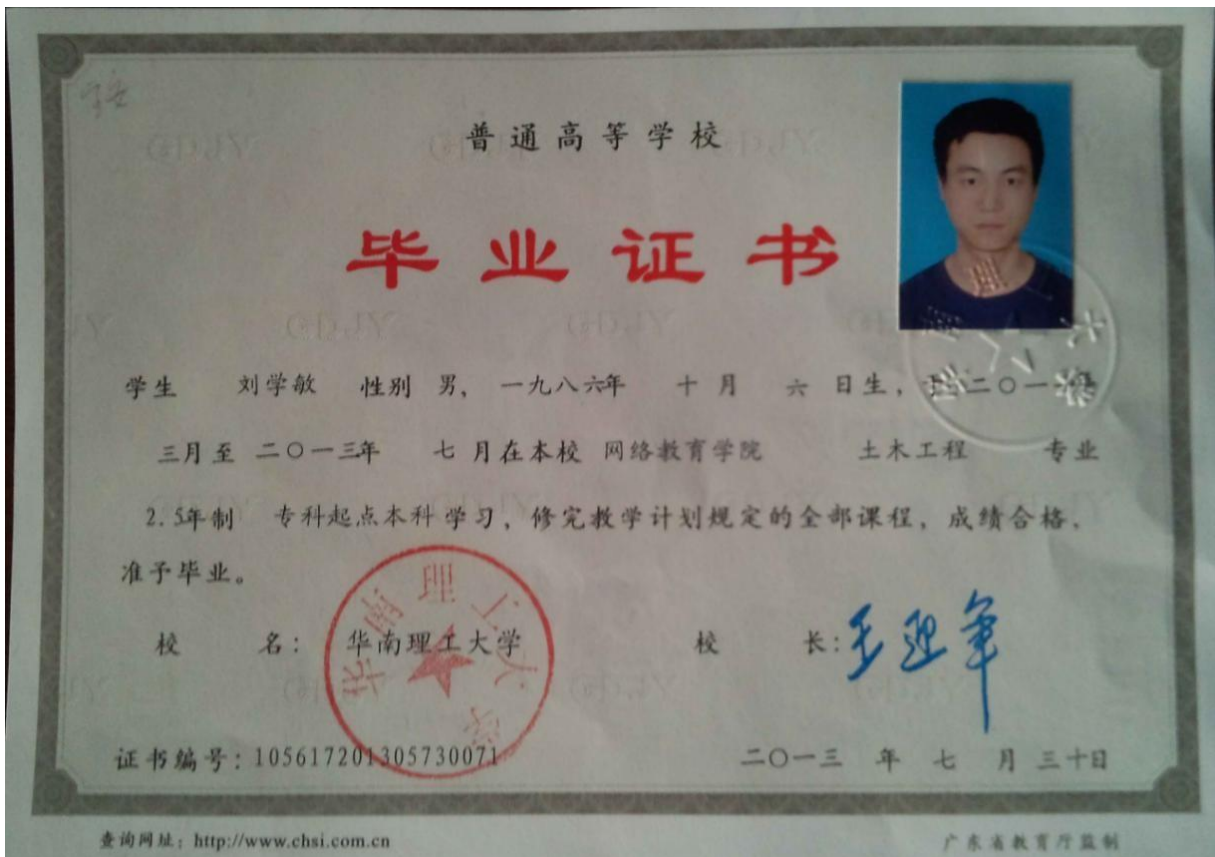 普通高等学校
毕业证书
学生 刘学敏 性别 男, 一九八六年 十月 六 日生, 于二〇一一年
三月至 二〇一三年 七 月在本校 网络教育学院 土木工程 专业
2.5年制 专科起点本科 学习, 修完教学计划规定的全部课程, 成绩合格,
准予毕业。
校 名: 华南理工大学 校 长: 王迎军
华南理工大学
证书编号: 105617201305730071 二〇一三 年 七 月 三十日
查询网址: http://www.chsi.com.cn 广东省教育厅监制